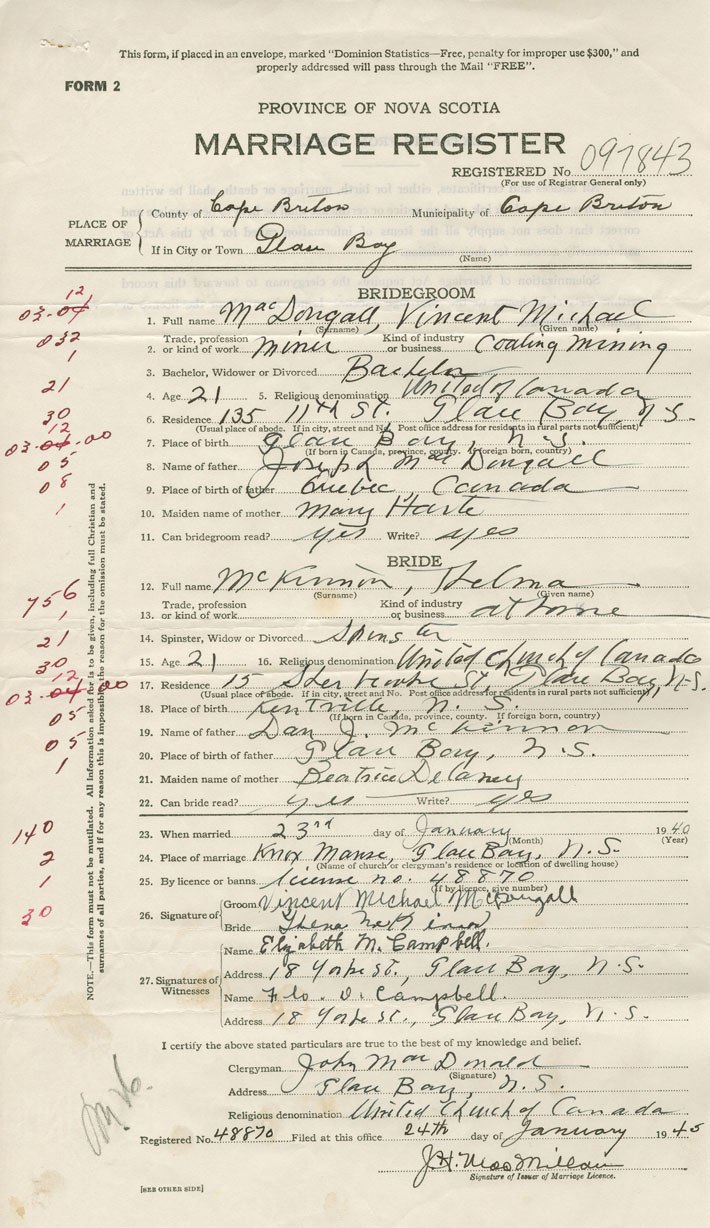 This form, if placed in an envelope, marked "Dominion Statistics—Free, penalty for improper use $300," and
properly addressed will pass through the Mail "FREE".
FORM 2
PROVINCE OF NOVA SCOTIA
MARRIAGE REGISTER
REGISTERED No. 097843
(For use of Registrar General only)
PLACE OF MARRIAGE
County of Cape Breton Municipality of Cape Breton
If in City or Town Glace Bay
(Name)
BRIDEGROOM
12
03.04
1. Full name MacDougall, Vincent Michael
(Surname) (Given name)
032
2. Trade, profession or kind of work miner Kind of industry or business Coaling mining
1
3. Bachelor, Widower or Divorced Bachelor
21
4. Age 21 5. Religious denomination United of Canada
30
6. Residence 135 11th St. Glace Bay, N.S.
(Usual place of abode. If in city, street and No. Post office address for residents in rural parts not sufficient)
12
03.04.00
7. Place of birth Glace Bay, N.S.
(If born in Canada, province, county. If foreign born, country)
05
8. Name of father Joseph MacDougall
08
9. Place of birth of father Quebec, Canada
1
10. Maiden name of mother Mary Harte
11. Can bridegroom read? yes Write? yes
BRIDE
12. Full name McKinnon, Thelma
(Surname) (Given name)
756
13. Trade, profession or kind of work Kind of industry or business at home
1
14. Spinster, Widow or Divorced Spinster
21
15. Age 21 16. Religious denomination United Church of Canada
30
17. Residence 15 St., Glace Bay, N.S.
(Usual place of abode. If in city, street and No. Post office address for residents in rural parts not sufficient)
12
03.04.00
18. Place of birth Kentville, N.S.
(If born in Canada, province, county. If foreign born, country)
05
19. Name of father Dan J. McKinnon
05
20. Place of birth of father Glace Bay, N.S.
1
21. Maiden name of mother Beatrice Delaney
22. Can bride read? yes Write? yes
140
23. When married 23rd day of January 1940
(Month) (Year)
2
24. Place of marriage Knox Manse, Glace Bay, N.S.
(Name of church or clergyman's residence or location of dwelling house)
1
25. By licence or banns license no. 48870
(If by licence, give number)
30
26. Signature of Groom Vincent Michael McDougall
Bride
27. Signatures of Witnesses
Name Elizabeth M. Campbell.
Address 18 Yorke St., Glace Bay, N.S.
Name Flo. D. Campbell.
Address 18 Yorke St., Glace Bay, N.S.
I certify the above stated particulars are true to the best of my knowledge and belief.
Clergyman John MacDonald
(Signature)
Address Glace Bay, N.S.
Religious denomination United Church of Canada
Registered No. 48870 Filed at this office 24th day of January 1945
J.H. MacMillan
Signature of Issuer of Marriage Licence.
[SEE OTHER SIDE]
NOTE.—This form must not be mutilated. All information asked for is to be given, including full Christian and
surnames of all parties, and if for any reason this is impossible the reason for the omission must be stated.